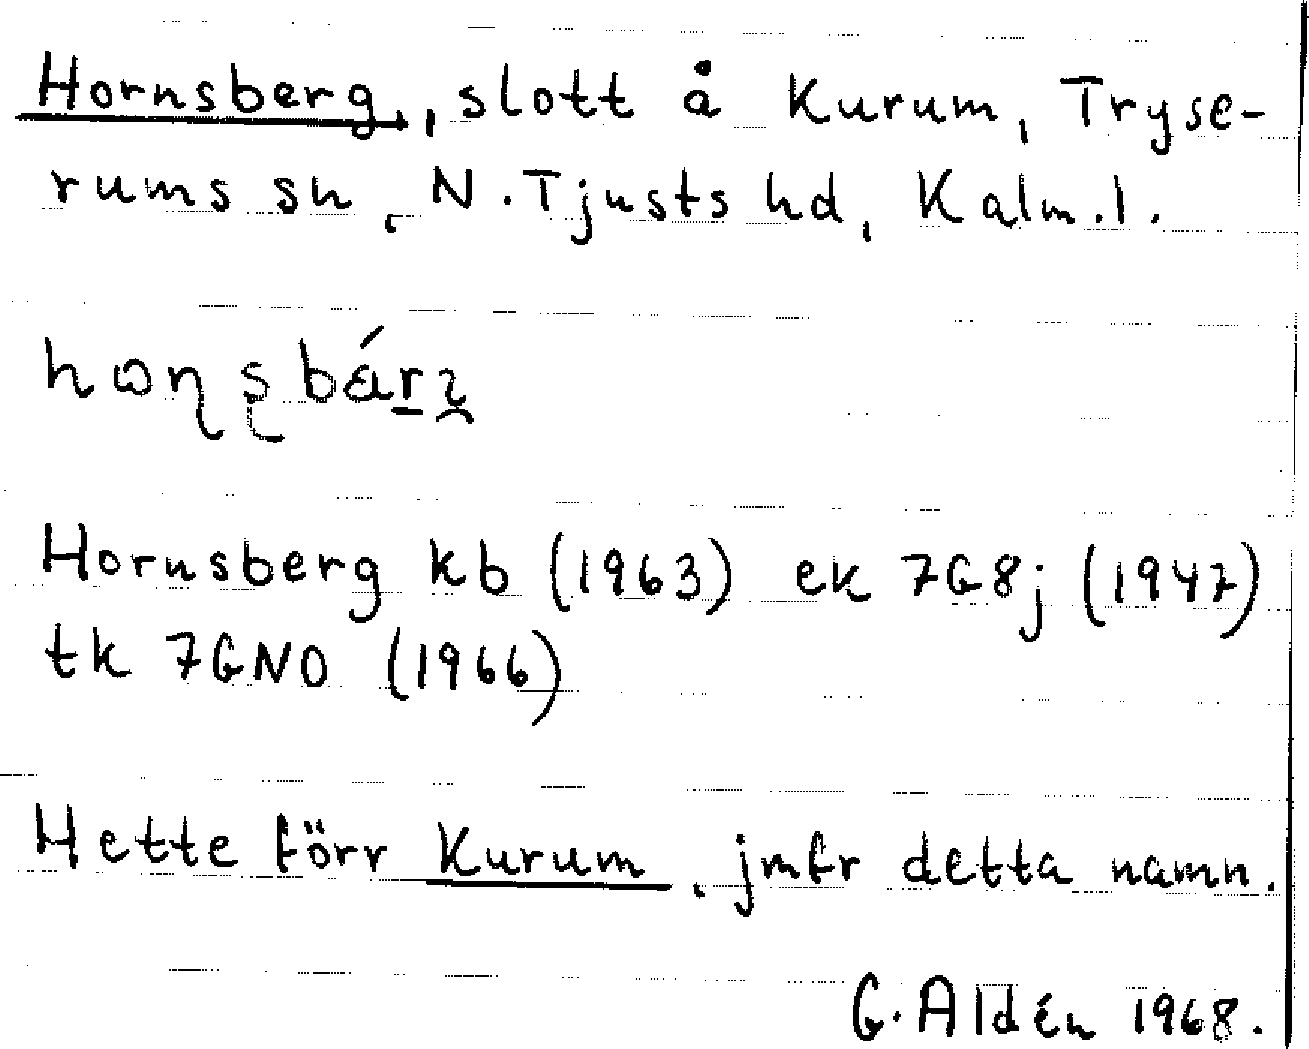 Hornsberg, slott å Kurum, Tryse-
rums sn, N. Tjusts hd, Kalm. l.
Hornsberg kb (1963) ek 7G8j (1947)
tk 7GNO (1966)
Hette förr Kurum, jmfr detta namn.
G. Aldén 1968.